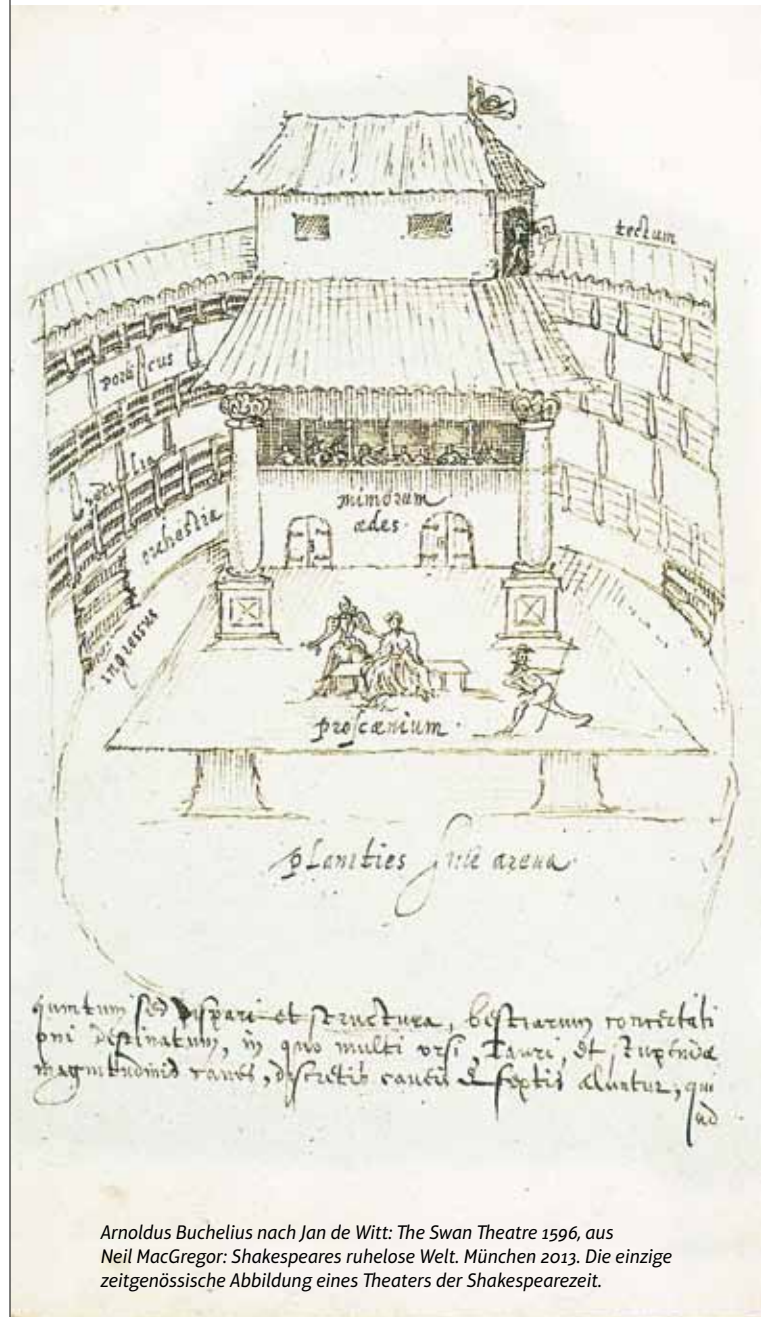 tectum
porticus
sedilia
orchestra
mimorum
ædes.
ingressus
proscænium.
planities sive arena.
quintum sed dispari et structura, bestiarum concertati
oni destinatum, in quo multi ursi, Tauri, et stupendæ
magnitudinis canes, discretis caveis & septis aluntur, qui
ad
Arnoldus Buchelius nach Jan de Witt: The Swan Theatre 1596, aus
Neil MacGregor: Shakespeares ruhelose Welt. München 2013. Die einzige
zeitgenössische Abbildung eines Theaters der Shakespearezeit.